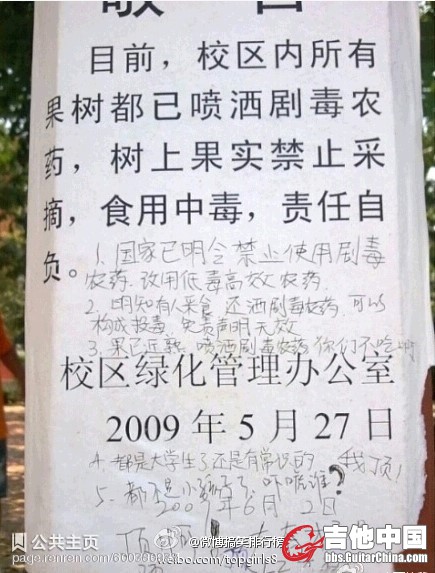 敬告
目前，校区内所有
果树都已喷洒剧毒农
药，树上果实禁止采
摘，食用中毒，责任自
负。
1. 国家已明令禁止使用剧毒
农药.改用低毒高效农药.
2. 明知有人采食 还洒剧毒农药,可以
构成投毒.免责声明无效
3. 果已近熟.喷洒剧毒农药你们不吃
校区绿化管理办公室
2009 年 5 月 27 日
4. 都是大学生了还是有常识的 我顶！
5. 都不是小孩子了,吓唬谁？
2009年6月2日
顶
公共主页
page.renren.com/600
@微博搞笑排行榜
weibo.com/topgirls8
吉他中国
bbs.GuitarChina.com